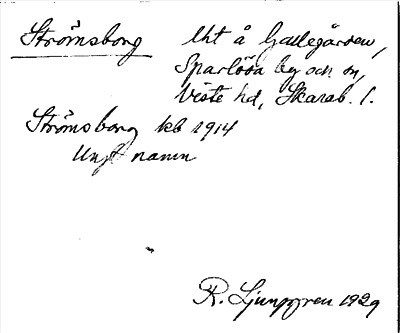 Strömsborg lht å Gallegården,
Sparlösa by och sn,
Viste hd, Skarab. l.
Strömsborg kb 1914
Ungt namn
R. Ljunggren 1929